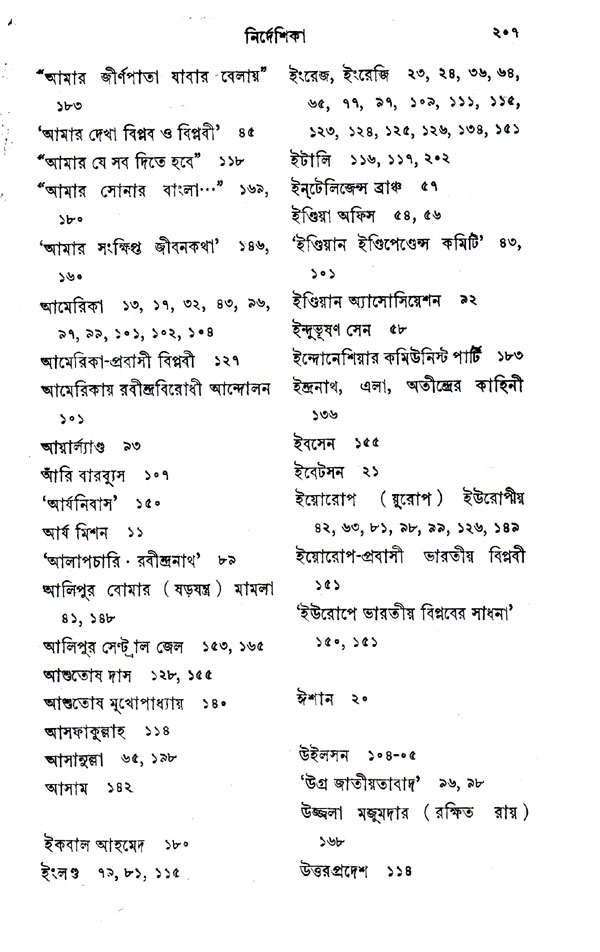 নির্দেশিকা ২০৭
“আমার জীর্ণপাতা যাবার বেলায়”
১৮৩
‘আমার দেখা বিপ্লব ও বিপ্লবী’ ৪৫
“আমার যে সব দিতে হবে” ১১৮
“আমার সোনার বাংলা…” ১৬৯,
১৮০
‘আমার সংক্ষিপ্ত জীবনকথা’ ১৪৬,
১৬০
আমেরিকা ১৩, ১৭, ৩২, ৪৩, ৯৬,
৯৭, ৯৯, ১০১, ১০২, ১০৪
আমেরিকা-প্রবাসী বিপ্লবী ১২৭
আমেরিকায় রবীন্দ্রবিরোধী আন্দোলন
১০১
আয়ার্ল্যাণ্ড ৯৩
আঁরি বারব্যুস ১০৭
‘আর্যনিবাস’ ১৫০
আর্য মিশন ১১
‘আলাপচারি · রবীন্দ্রনাথ’ ৮৯
আলিপুর বোমার (ষড়যন্ত্র) মামলা
৪১, ১৪৮
আলিপুর সেণ্ট্রাল জেল ১৫৩, ১৬৫
আশুতোষ দাস ১২৮, ১৫৫
আশুতোষ মুখোপাধ্যায় ১৪০
আসফাকুল্লাহ ১১৪
আসানুল্লা ৬৫, ১৯৮
আসাম ১৪২
ইকবাল আহমেদ ১৮০
ইংলণ্ড ৭৯, ৮১, ১১৫
ইংরেজ, ইংরেজি ২৩, ২৪, ৩৬, ৬৪,
৬৫, ৭৭, ৯৭, ১০৯, ১১১, ১১৫,
১২৩, ১২৪, ১২৫, ১২৬, ১৩৪, ১৫১
ইটালি ১১৬, ১১৭, ২০২
ইন্‌টেলিজেন্স ব্রাঞ্চ ৫৭
ইণ্ডিয়া অফিস ৫৪, ৫৬
‘ইণ্ডিয়ান ইণ্ডিপেণ্ডেন্স কমিটি’ ৪৩,
১০১
ইণ্ডিয়ান অ্যাসোসিয়েশন ৯২
ইন্দুভূষণ সেন ৫৮
ইন্দোনেশিয়ার কমিউনিস্ট পার্টি ১৮৩
ইন্দ্রনাথ, এলা, অতীন্দ্রের কাহিনী
১৩৬
ইবসেন ১৫৫
ইবেটসন ২১
ইয়োরোপ (য়ুরোপ) ইউরোপীয়
৪২, ৬৩, ৮১, ৯৮, ৯৯, ১২৬, ১৪৯
ইয়োরোপ-প্রবাসী ভারতীয় বিপ্লবী
১৫১
‘ইউরোপে ভারতীয় বিপ্লবের সাধনা’
১৫০, ১৫১
ঈশান ২০
উইলসন ১০৪-০৫
‘উগ্র জাতীয়তাবাদ’ ৯৬, ৯৮
উজ্জ্বলা মজুমদার (রক্ষিত রায়)
১৬৮
উত্তরপ্রদেশ ১১৪